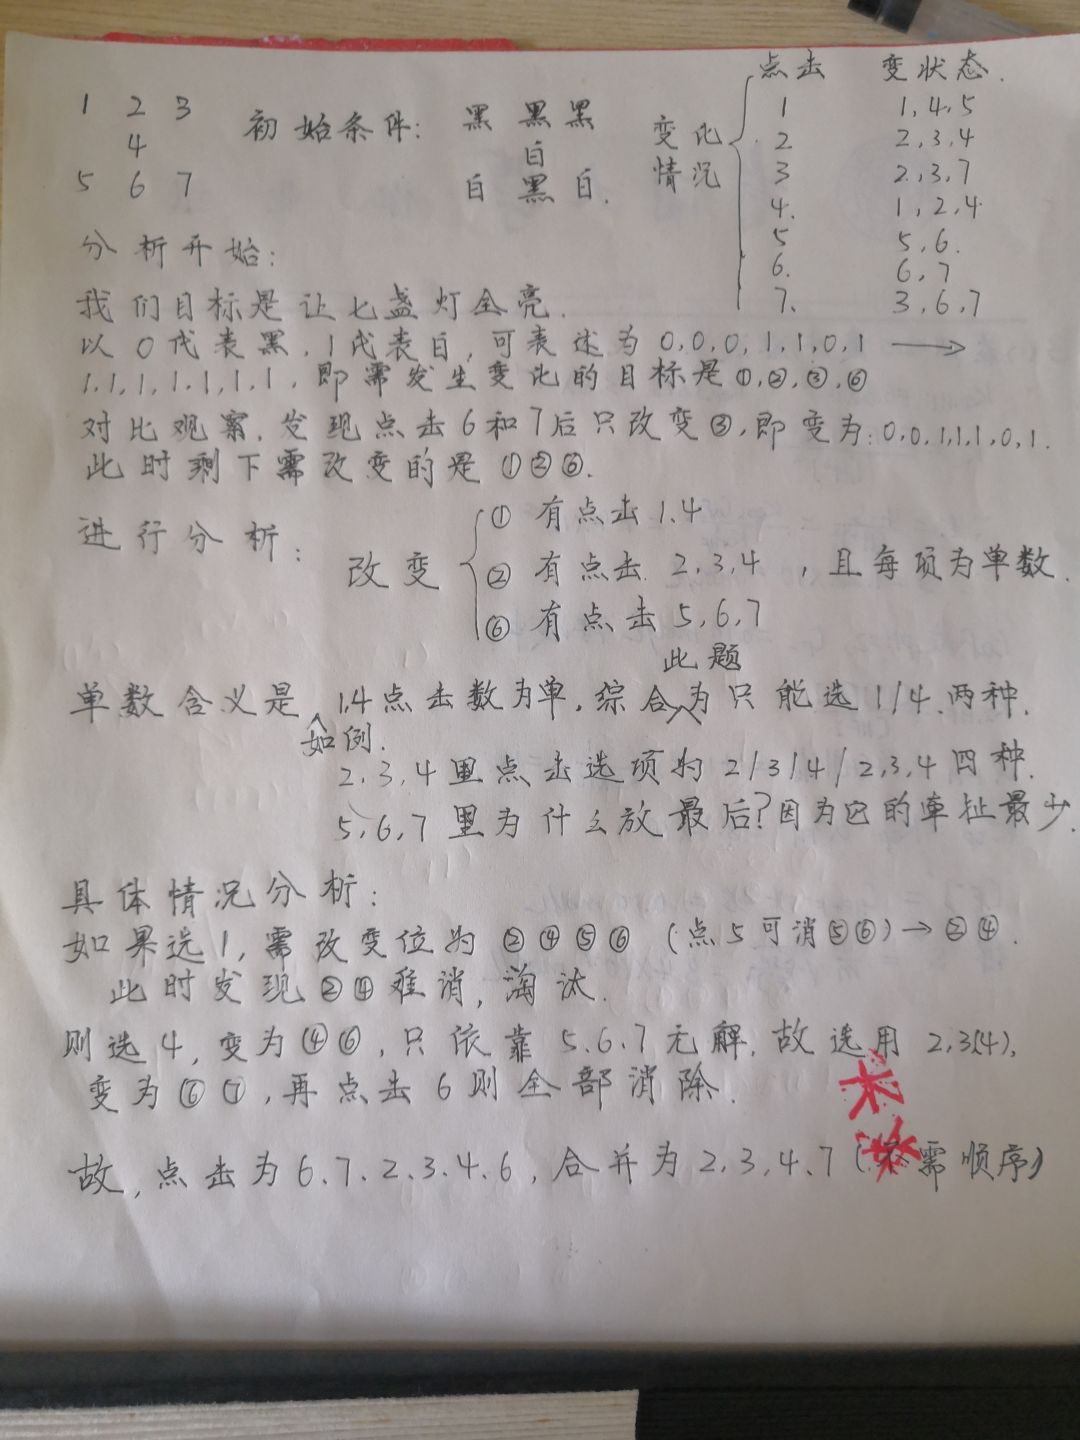 点击 变状态.
1 2 3
4
5 6 7
初始条件: 黑 黑 黑
白
白 黑 白.
变化
情况
1 1,4,5
2 2,3,4
3 2,3,7
4. 1,2,4
5 5,6.
6. 6,7
7. 3,6,7
分析开始:
我们目标是让七盏灯全亮.
以0代表黑,1代表白,可表述为0,0,0,1,1,0,1 →
1,1,1,1,1,1,1,即需发生变化的目标是①,②,③,⑥
对比观察,发现点击6和7后只改变③,即变为:0,0,1,1,1,0,1.
此时剩下需改变的是①②⑥.
进行分析:
改变
① 有点击1.4
② 有点击 2,3,4 ,且每项为单数.
⑥ 有点击5,6,7
此题
单数含义是 1,4点击数为单,综合为只能选1/4.两种.
如例.
2,3,4里点击选项为2/3/4/2,3,4四种.
5,6,7里为什么放最后?因为它的牵扯最少.
具体情况分析:
如果选1,需改变位为②④⑤⑥(点5可消⑤⑥)→②④.
此时发现②④难消,淘汰.
则选4,变为④⑥,只依靠5.6.7无解,故选用2,3(4),
变为⑥⑦,再点击6则全部消除.
故,点击为6.7.2.3.4.6,合并为2,3,4,7(不需顺序)